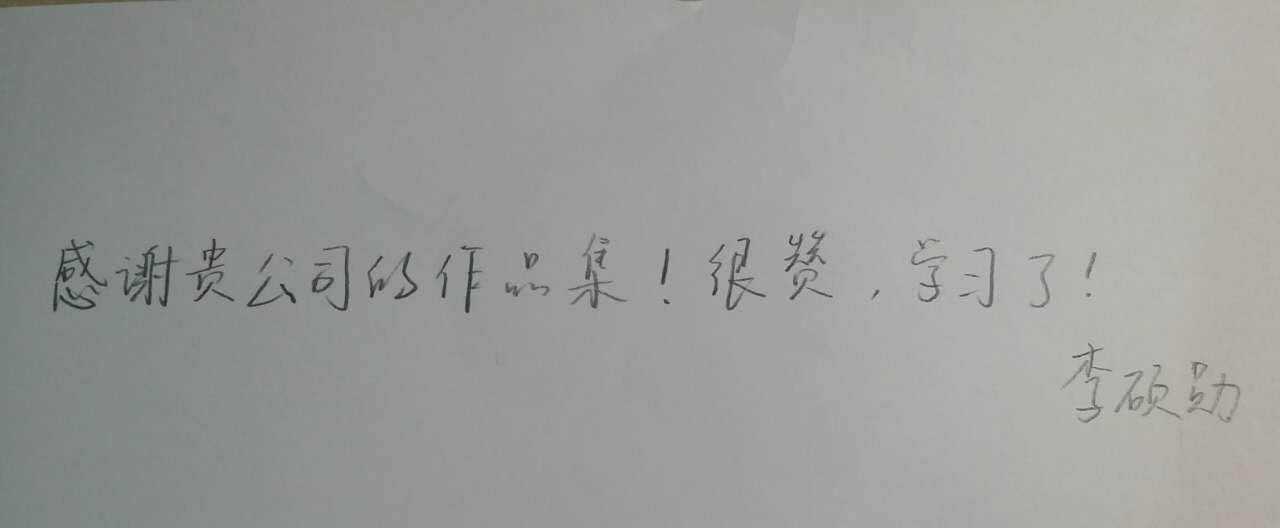 感谢贵公司的作品集！很赞，学习了！
李硕勋